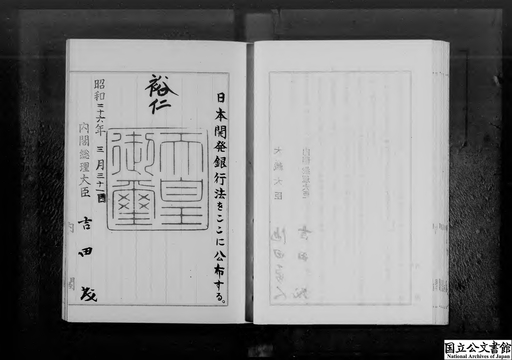 日本開発銀行法をここに公布する。
裕仁
天皇御璽
昭和二十六年三月三十一日
内閣総理大臣 吉田茂
国立公文書館
National Archives of Japan